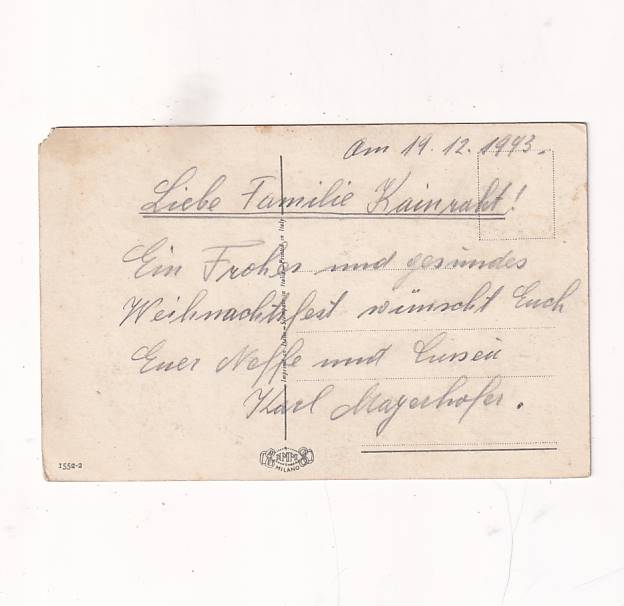 Am 19. 12. 1943.
Liebe Familie Kainraht!
Ein Frohes und gesundes
Weihnachtsfest wünscht Euch
Euer Neffe und Cusen
Karl Mayerhofer.
1552-2
MILANO